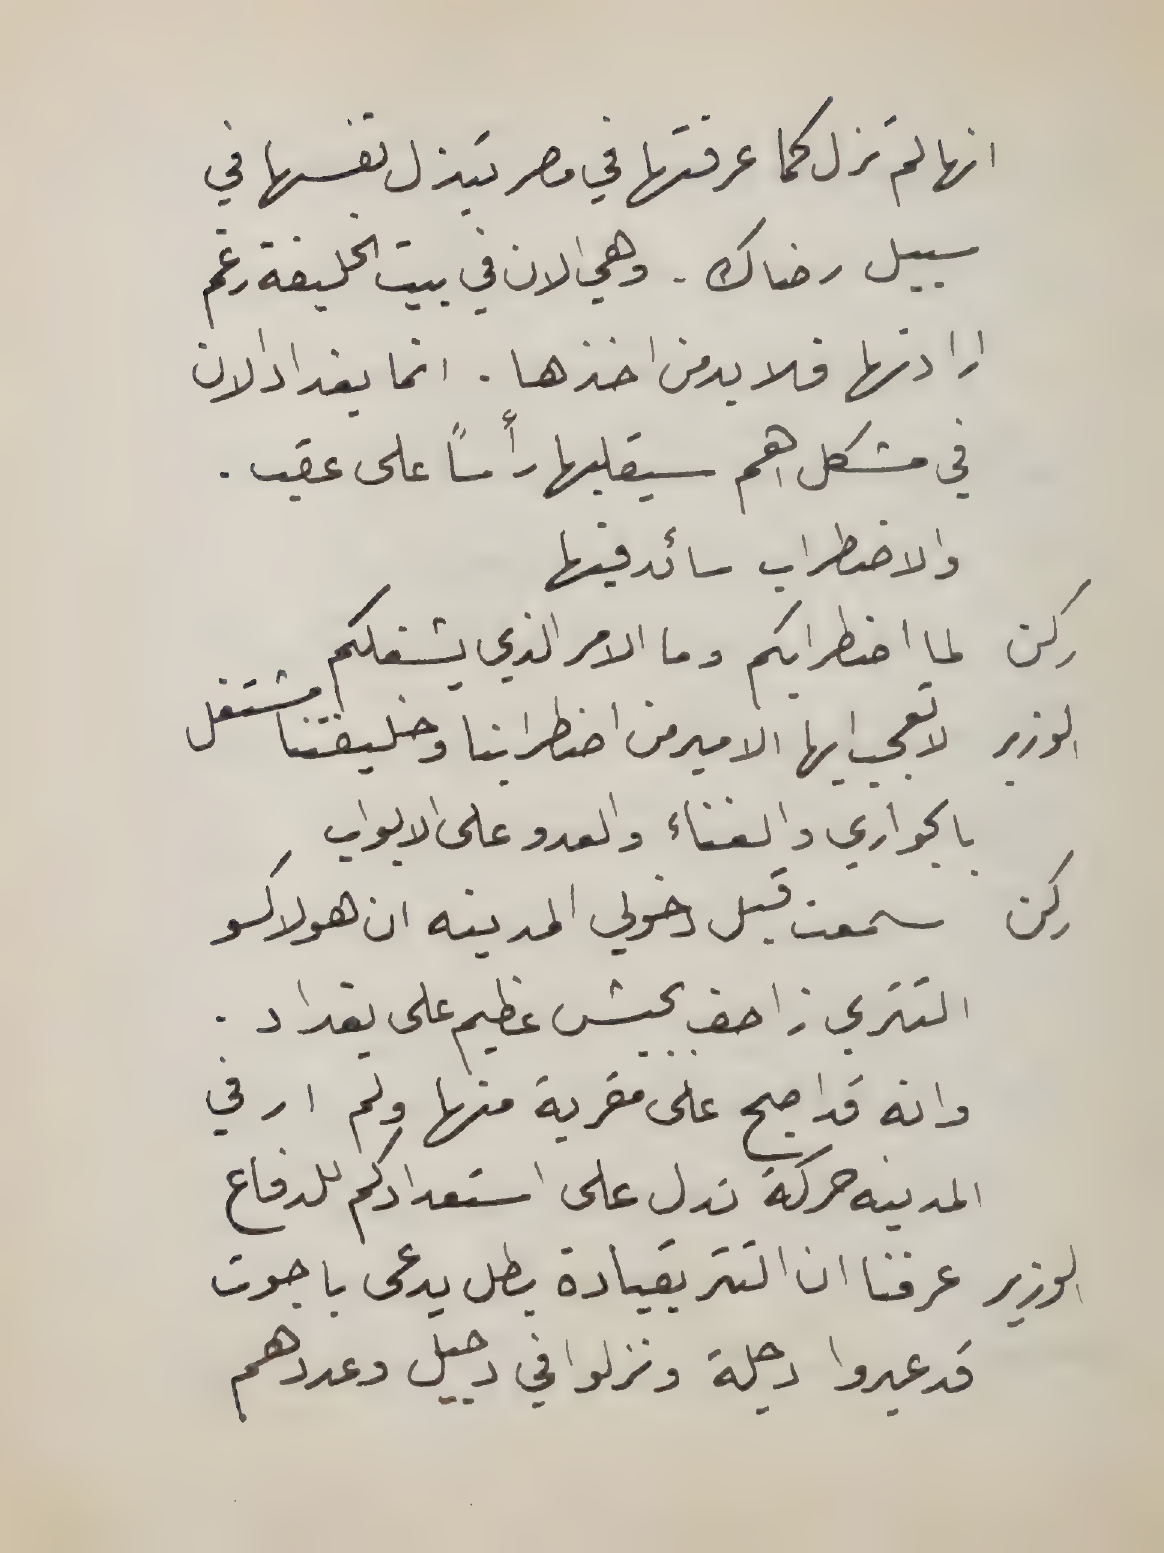 انها لم تزل كما عرفتها في مصر تبذل نفسها في
سبيل رضاك . وهي الان في بيت الخليفة رغم
ارادتها فلا بد من اخذها . انما بغداد الان
في مشكل اهم سيقلبها رأساً على عقب .
والاضطراب سائد فيها
ركن لما اضطرابكم وما الامر الذي يشغلكم
الوزير لا تعجب ايها الامير من اضطرابنا وخليفتنا مشتغل
بالجواري والغناء والعدو على الابواب
ركن سمعت قبل دخولي المدينه ان هولاكو
التتري زاحف بجيش عظيم على بغداد .
وانه قد اصبح على مقربة منها ولم ار في
المدينه حركة تدل على استعدادكم للدفاع
الوزير عرفنا ان التتر بقيادة بطل يدعى باجوت
قد عبروا دجلة ونزلوا في دجيل وعددهم